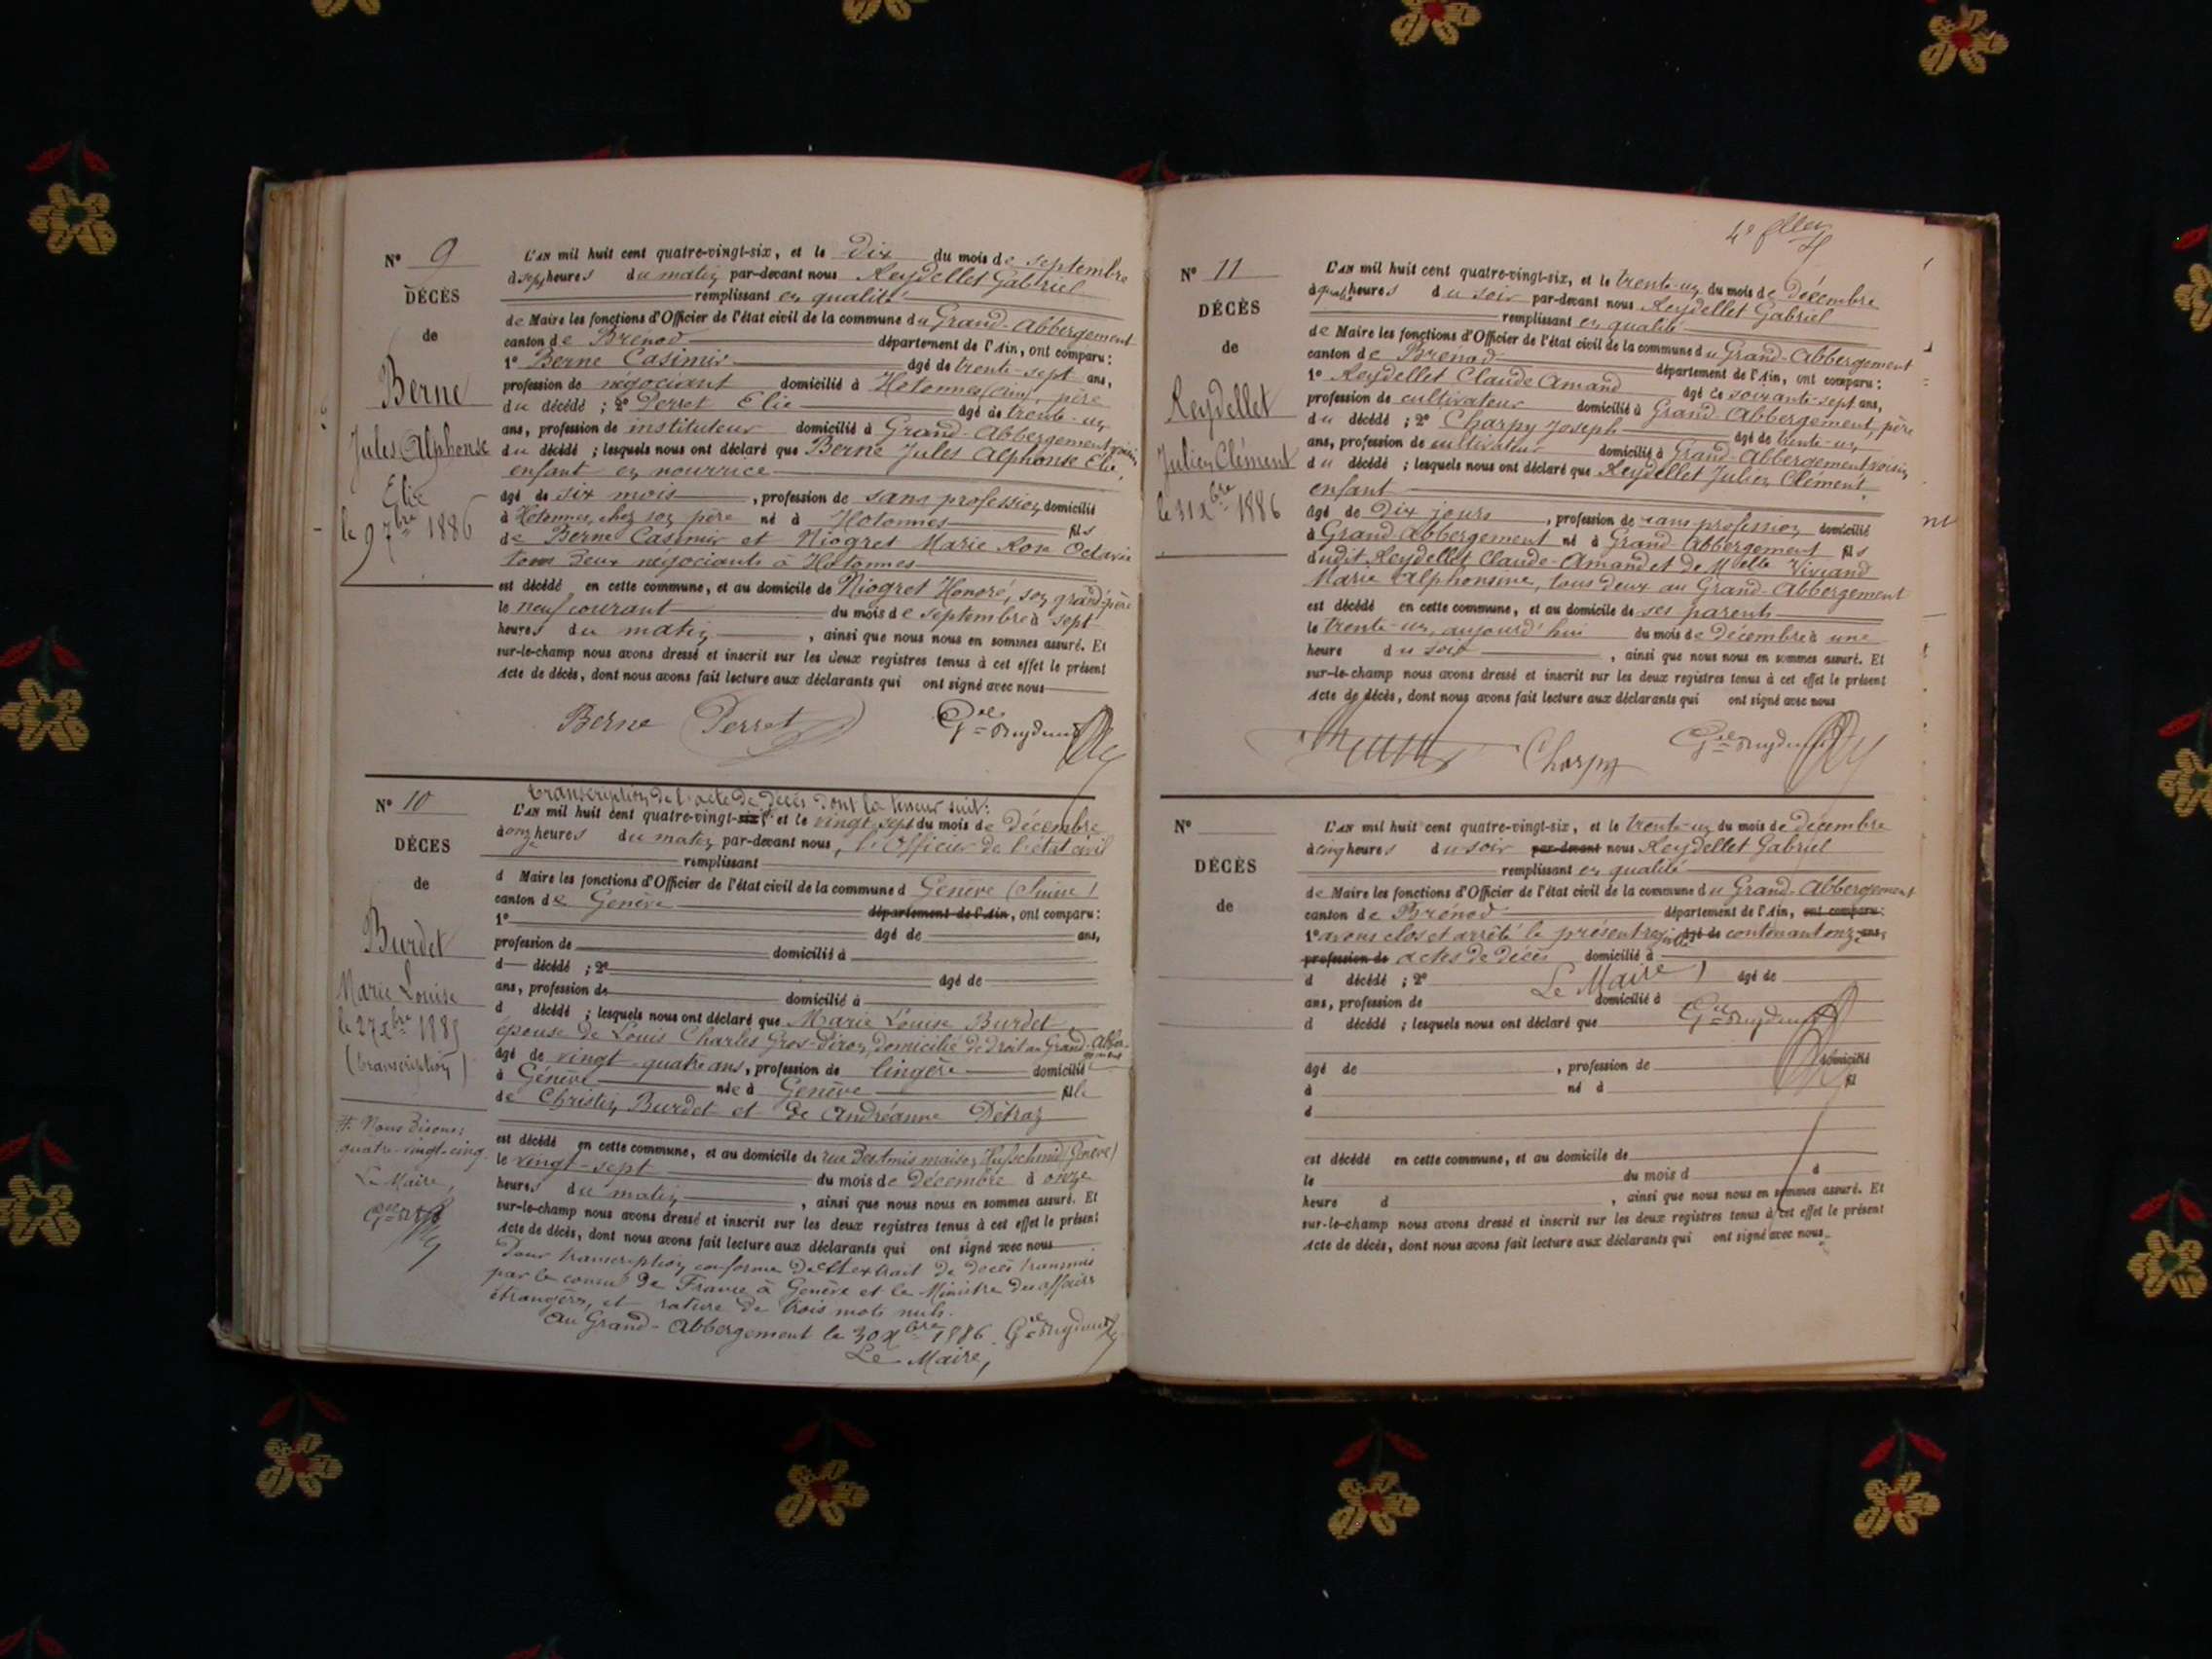 N° 9
DÉCÈS
de
Berne
Jules Alphonse
Elie
le 9 7bre 1886
L'AN mil huit cent quatre-vingt-six, et le dix du mois de septembre
à sept heures du matin par-devant nous Reydellet Gabriel
remplissant en qualité
de Maire les fonctions d'Officier de l'état civil de la commune du Grand-Abbergement
canton de Brénod département de l'Ain, ont comparu :
1° Berne Casimir âgé de trente-sept ans,
profession de négociant domicilié à Hotonnes (Ain), père
du décédé ; 2° Perret Elie âgé de trente-un
ans, profession de instituteur domicilié à Grand-Abbergement, voisin
du décédé ; lesquels nous ont déclaré que Berne Jules Alphonse Elie,
enfant en nourrice
âgé de six mois, profession de sans profession domicilié
à Hotonnes, chez son père né à Hotonnes fils
de Berne Casimir et Niogret Marie Rose Octavie
tous deux négociants à Hotonnes
est décédé en cette commune, et au domicile de Niogret Honoré, son grand-père
le neuf courant du mois de septembre à sept
heures du matin, ainsi que nous nous en sommes assuré. Et
sur-le-champ nous avons dressé et inscrit sur les deux registres tenus à cet effet le présent
Acte de décès, dont nous avons fait lecture aux déclarants qui ont signé avec nous
Berne Perret
N° 10
DÉCÈS
de
Burdet
Marie Louise
le 27 Xbre 1885
(transcription)
# Nous disons :
quatre-vingt-cinq.
Le Maire,
transcription de l'acte de décès dont la teneur suit :
L'AN mil huit cent quatre-vingt-six # et le vingt sept du mois de décembre
à onze heures du matin par-devant nous, l'officier de l'état civil
remplissant
d Maire les fonctions d'Officier de l'état civil de la commune d Genève (Suisse)
canton de Genève département de l'Ain, ont comparu :
1° âgé de ans,
profession de domicilié à
d décédé ; 2° âgé de
ans, profession de domicilié à
d décédé ; lesquels nous ont déclaré que Marie Louise Burdet
épouse de Louis Charles Gros-Piron, domicilié de droit au Grand-Abbergement
âgé de vingt-quatre ans, profession de lingère domicilié
à Genève née à Genève fille
de Christin Burdet et de Andréanne Détraz
est décédé en cette commune, et au domicile de rue maison (Genève)
le vingt-sept du mois de décembre à onze
heures du matin, ainsi que nous nous en sommes assuré. Et
sur-le-champ nous avons dressé et inscrit sur les deux registres tenus à cet effet le présent
Acte de décès, dont nous avons fait lecture aux déclarants qui ont signé avec nous
Pour transcription conforme de l'extrait de décès transmis
par le consul de France à Genève et le Ministre des affaires
étrangères, et rature de trois mots nuls.
Au Grand-Abbergement le 30 Xbre 1886.
Le Maire,
N° 11
DÉCÈS
de
Reydellet
Julien Clément
le 31 Xbre 1886
L'AN mil huit cent quatre-vingt-six, et le trente-un du mois de décembre
à quatre heures du soir par-devant nous Reydellet Gabriel
remplissant en qualité
de Maire les fonctions d'Officier de l'état civil de la commune du Grand-Abbergement
canton de Brénod département de l'Ain, ont comparu :
1° Reydellet Claude Amand âgé de soixante-sept ans,
profession de cultivateur domicilié à Grand-Abbergement, père
du décédé ; 2° Charpy Joseph âgé de trente-un
ans, profession de cultivateur domicilié à Grand-Abbergement, voisin
du décédé ; lesquels nous ont déclaré que Reydellet Julien Clément,
enfant
âgé de dix jours, profession de sans profession domicilié
à Grand Abbergement né à Grand-Abbergement fils
dudit Reydellet Claude-Amand et de Melle Viviand
Marie Alphonsine, tous deux au Grand-Abbergement
est décédé en cette commune, et au domicile de ses parents
le trente-un, aujourd'hui du mois de décembre à une
heure du soir, ainsi que nous nous en sommes assuré. Et
sur-le-champ nous avons dressé et inscrit sur les deux registres tenus à cet effet le présent
Acte de décès, dont nous avons fait lecture aux déclarants qui ont signé avec nous
Charpy
N°
DÉCÈS
de
L'AN mil huit cent quatre-vingt-six, et le trente-un du mois de décembre
à cinq heures du soir par-devant nous Reydellet Gabriel
remplissant en qualité
de Maire les fonctions d'Officier de l'état civil de la commune du Grand-Abbergement
canton de Brénod département de l'Ain, ont comparu :
1° avons clos et arrêté le présent registre âgé de contenant onze ans,
profession de actes de décès domicilié à
d décédé ; 2° Le Maire, âgé de
ans, profession de domicilié à
d décédé ; lesquels nous ont déclaré que
âgé de , profession de domicilié
à né à fil
d
est décédé en cette commune, et au domicile de
le du mois d à
heure d , ainsi que nous nous en sommes assuré. Et
sur-le-champ nous avons dressé et inscrit sur les deux registres tenus à cet effet le présent
Acte de décès, dont nous avons fait lecture aux déclarants qui ont signé avec nous